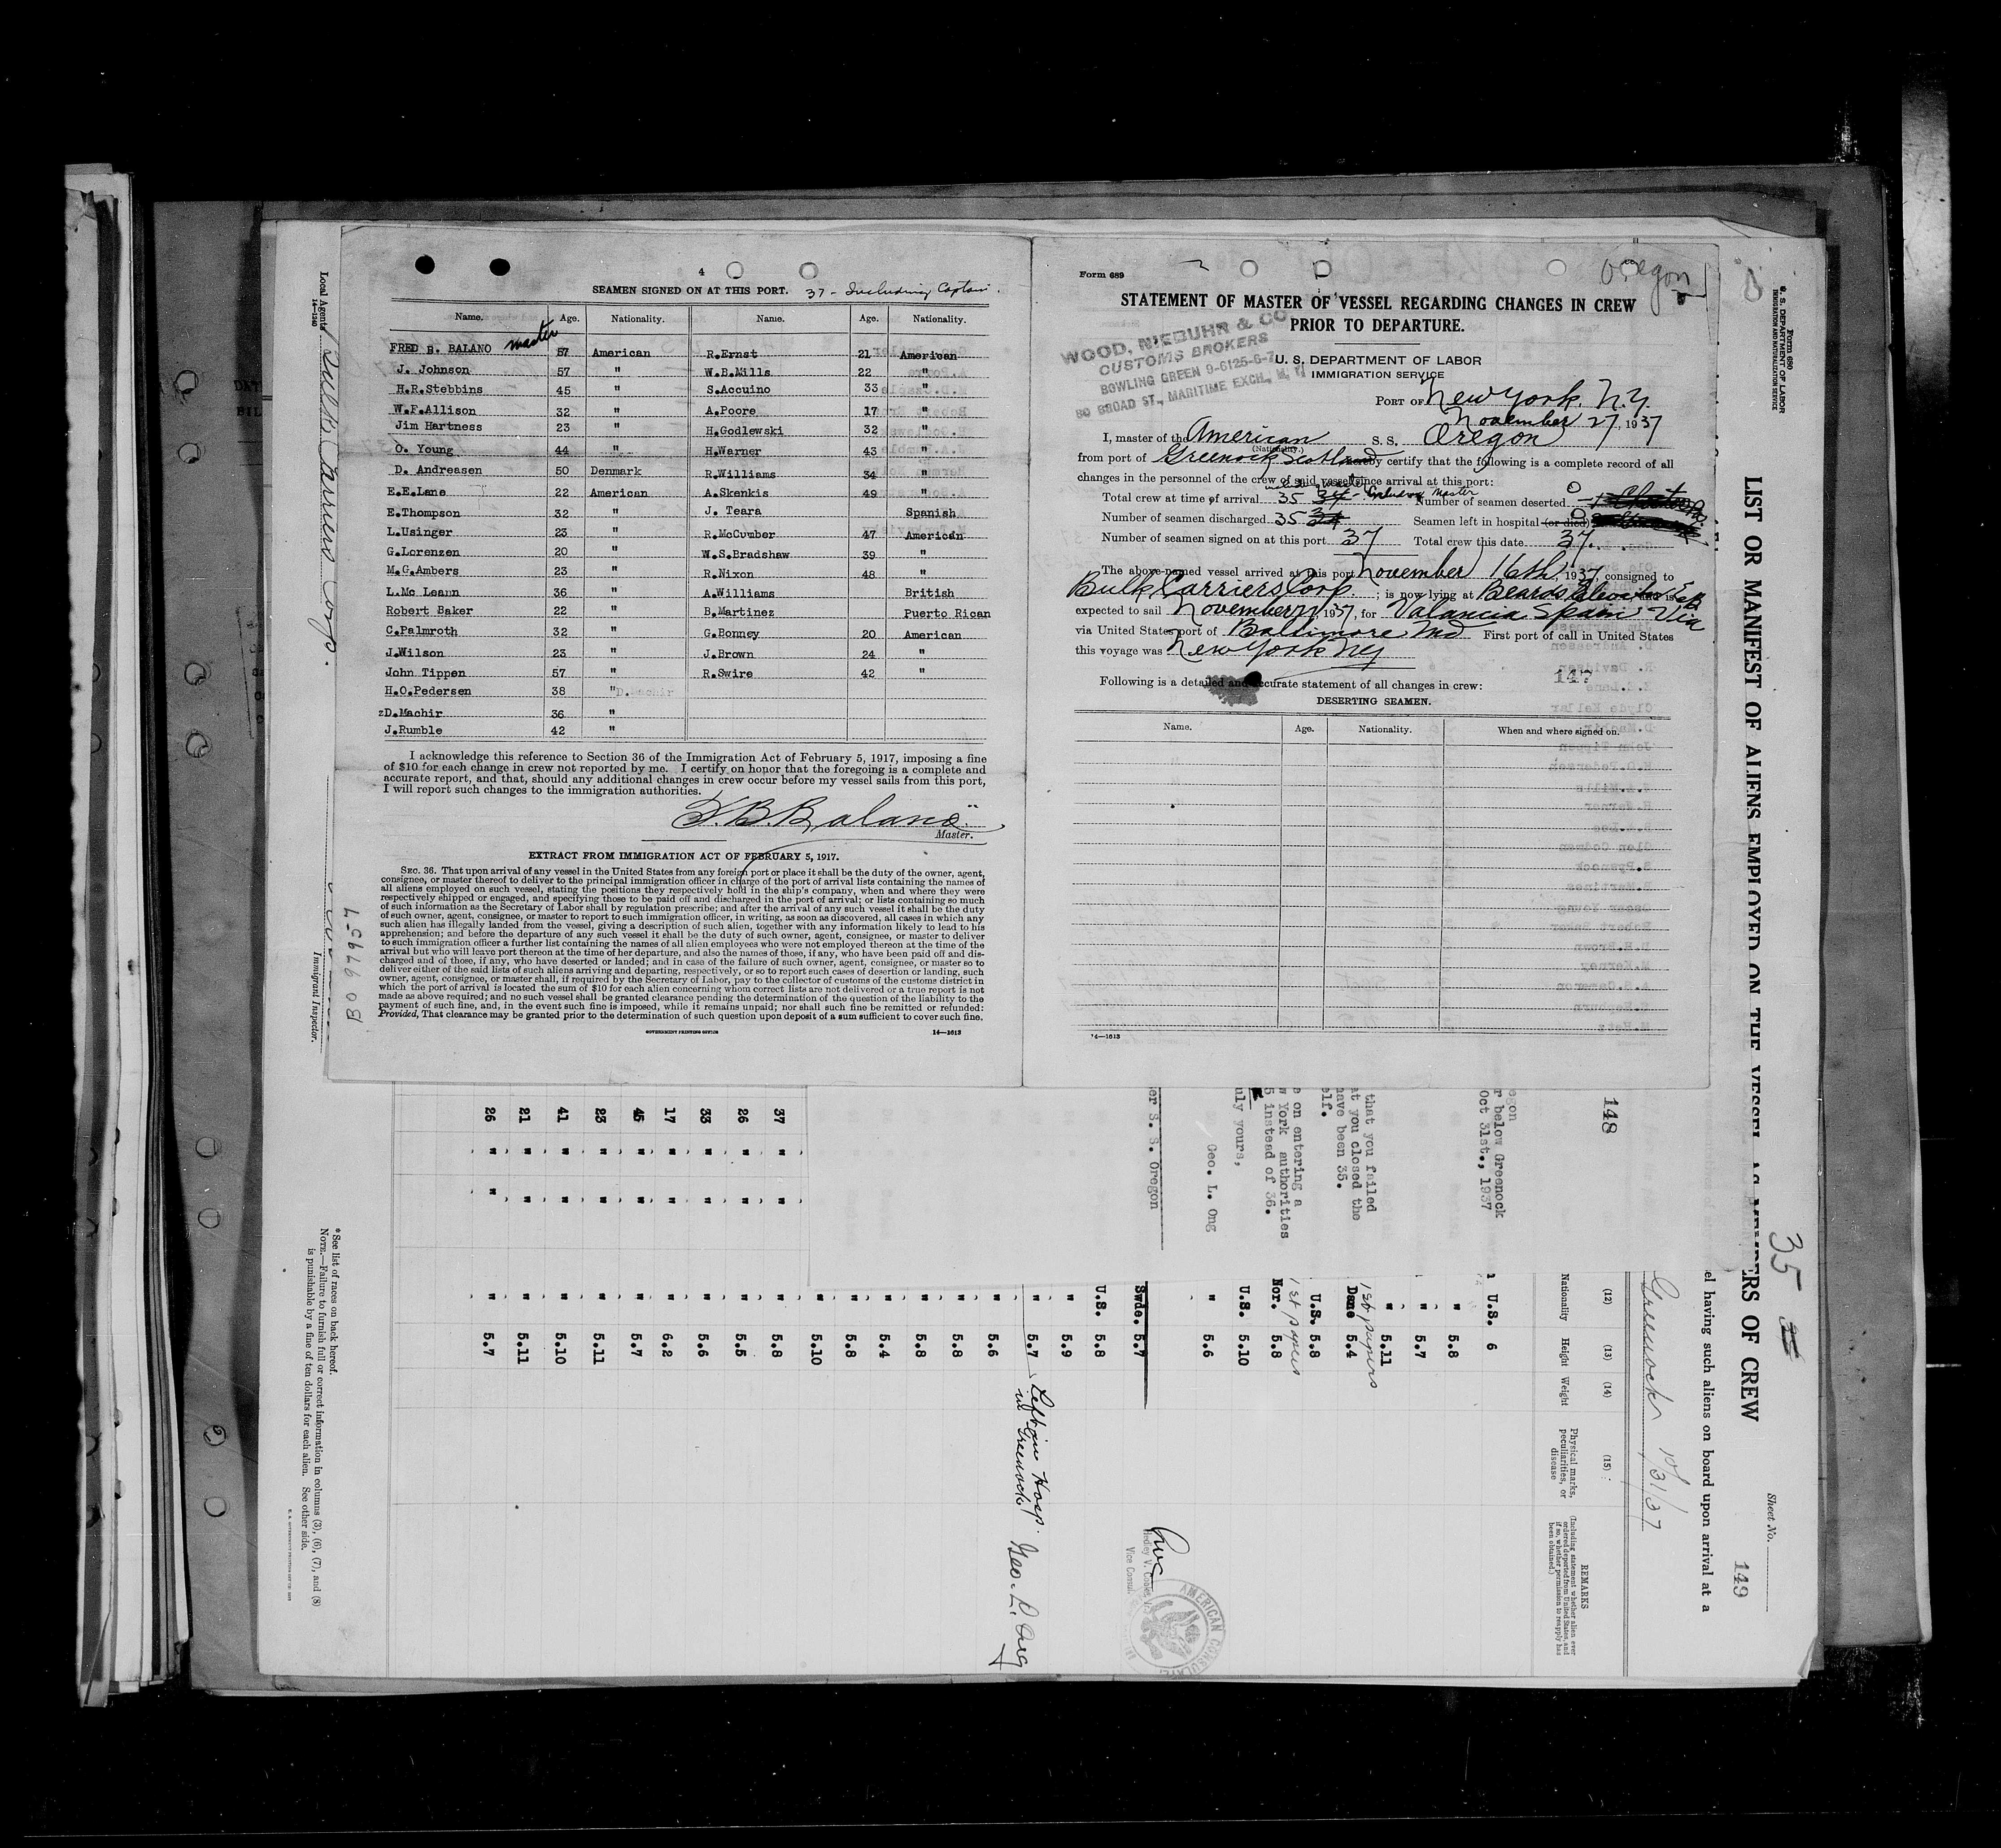 4
SEAMEN SIGNED ON AT THIS PORT. 37 - Including Captain.
Name. Age. Nationality. Name. Age. Nationality.
FRED B. BALANO master 57 American R.Ernst 21 American
J. Johnson 57 " W.B.Mills 22 "
H.R.Stebbins 45 " S.Accuino 33 "
W.F.Allison 32 " A.Poore 17 "
Jim Hartness 23 " H.Godlewski 32 "
O. Young 44 " H.Warner 43 "
D. Andreasen 50 Denmark R.Williams 34 "
E.E.Lane 22 American A.Skenkis 49 "
E.Thompson 32 " J. Teara Spanish
L.Usinger 23 " R.McCumber 47 American
G.Lorenzen 20 " W.S.Bradshaw 39 "
M.G.Ambers 23 " R.Nixon 48 "
L.Mc Leann 36 " A.Williams British
Robert Baker 22 " B.Martinez Puerto Rican
C.Palmroth 32 " G.Bonney 20 American
J.Wilson 23 " J.Brown 24 "
John Tippen 57 " R.Swire 42 "
H.O.Pedersen 38 " D.Machir
zD.Machir 36 "
J.Rumble 42 "
I acknowledge this reference to Section 36 of the Immigration Act of February 5, 1917, imposing a fine
of $10 for each change in crew not reported by me. I certify on honor that the foregoing is a complete and
accurate report, and that, should any additional changes in crew occur before my vessel sails from this port,
I will report such changes to the immigration authorities.
F.B.Balano
Master.
EXTRACT FROM IMMIGRATION ACT OF FEBRUARY 5, 1917.
SEC. 36. That upon arrival of any vessel in the United States from any foreign port or place it shall be the duty of the owner, agent,
consignee, or master thereof to deliver to the principal immigration officer in charge of the port of arrival lists containing the names of
all aliens employed on such vessel, stating the positions they respectively hold in the ship's company, when and where they were
respectively shipped or engaged, and specifying those to be paid off and discharged in the port of arrival; or lists containing so much
of such information as the Secretary of Labor shall by regulation prescribe; and after the arrival of any such vessel it shall be the duty
of such owner, agent, consignee, or master to report to such immigration officer, in writing, as soon as discovered, all cases in which any
such alien has illegally landed from the vessel, giving a description of such alien, together with any information likely to lead to his
apprehension; and before the departure of any such vessel it shall be the duty of such owner, agent, consignee, or master to deliver
to such immigration officer a further list containing the names of all alien employees who were not employed thereon at the time of the
arrival but who will leave port thereon at the time of her departure, and also the names of those, if any, who have been paid off and dis-
charged and of those, if any, who have deserted or landed; and in case of the failure of such owner, agent, consignee, or master so to
deliver either of the said lists of such aliens arriving and departing, respectively, or so to report such cases of desertion or landing, such
owner, agent, consignee, or master shall, if required by the Secretary of Labor, pay to the collector of customs of the customs district in
which the port of arrival is located the sum of $10 for each alien concerning whom correct lists are not delivered or a true report is not
made as above required; and no such vessel shall be granted clearance pending the determination of the question of the liability to the
payment of such fine, and, in the event such fine is imposed, while it remains unpaid; nor shall such fine be remitted or refunded:
Provided, That clearance may be granted prior to the determination of such question upon deposit of a sum sufficient to cover such fine.
GOVERNMENT PRINTING OFFICE 14—1613
Form 689
Oregon
STATEMENT OF MASTER OF VESSEL REGARDING CHANGES IN CREW
PRIOR TO DEPARTURE.
WOOD, NIEBUHN & CO.
CUSTOMS BROKERS
BOWLING GREEN 9-6125-6-7
80 BROAD ST., MARITIME EXCH., N. Y.
U. S. DEPARTMENT OF LABOR
IMMIGRATION SERVICE
PORT OF New York, N.Y.
November 27, 1937
I, master of the American S. S. Oregon
(Nationality.)
from port of Greenock Scotland hereby certify that the following is a complete record of all
changes in the personnel of the crew of said vessel since arrival at this port:
Total crew at time of arrival 35 34 - Including Master Number of seamen deserted 0
Number of seamen discharged 35 34 Seamen left in hospital (or died) 0
Number of seamen signed on at this port 37 Total crew this date 37
The above-named vessel arrived at this port November 16th, 1937, consigned to
Bulk Carriers Corp. ; is now lying at Beards and is
expected to sail November 27, 1937, for Valancia Spain Via
via United States port of Baltimore Md First port of call in United States
this voyage was New York NY
Following is a detailed and accurate statement of all changes in crew: 147
DESERTING SEAMEN.
Name. Age. Nationality. When and where signed on.
14—1613
Local Agents Bulk Carriers Corp.
14—1240
Immigrant Inspector.
Form 680
U. S. DEPARTMENT OF LABOR
IMMIGRATION AND NATURALIZATION SERVICE
LIST OR MANIFEST OF ALIENS EMPLOYED ON THE VESSEL AS MEMBERS OF CREW
35
Sheet No.
149
el having such aliens on board upon arrival at a
Greenock 10/31/37
148
(12) (13) (14) (15)
Nationality Height Weight Physical marks, peculiarities, or disease
REMARKS
(Including statement whether alien ever ordered deported from United States, and if so, whether permission to reapply has been obtained.)
egon
r below Greenock
Oct 31st., 1937
that you failed
at you closed the
have been 35.
elf.
e on entering a
w York authorities
5 instead of 36.
uly yours,
Geo. L. Ong
er S. S. Oregon
U.S. 6
" 5.8
" 5.7
" 5.11
1st papers
Dane 5.4
U.S. 5.8
1st papers
Nor. 5.8
U.S. 5.10
" 5.6
Swde. 5.7
U.S. 5.8
" 5.9
" 5.7 Left in Hosp. in Greenock Geo. L. Ong
" 5.6
" 5.8
" 5.8
" 5.4
" 5.8
" 5.10
37 " " " 5.8
26 " " " 5.5
33 " " " 5.6
17 " " " 6.2
45 " " " 5.7
23 " " " 5.11
41 " " " 5.10
21 " " " 5.11
26 " " " 5.7
Vice Consul
AMERICAN CONSULATE
*See list of races on back hereof.
NOTE.—Failure to furnish full or correct information in columns (3), (6), (7), and (8)
is punishable by a fine of ten dollars for each alien. See other side.